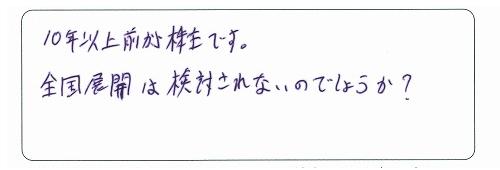 10年以上前から株主です。
全国展開は検討されないのでしょうか？